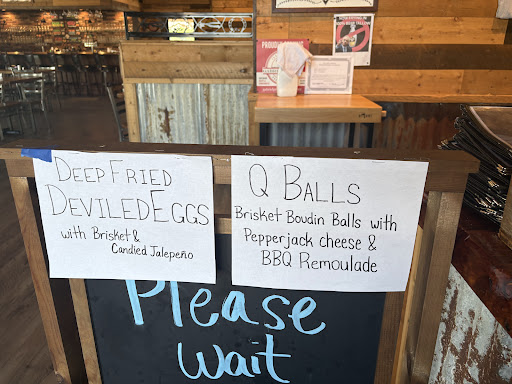 DEEP FRIED
DEVILED EGGS
with Brisket &
Candied Jalepeño
Q BALLS
Brisket Boudin Balls with
Pepperjack cheese &
BBQ Remoulade
Please
wait
PROUD